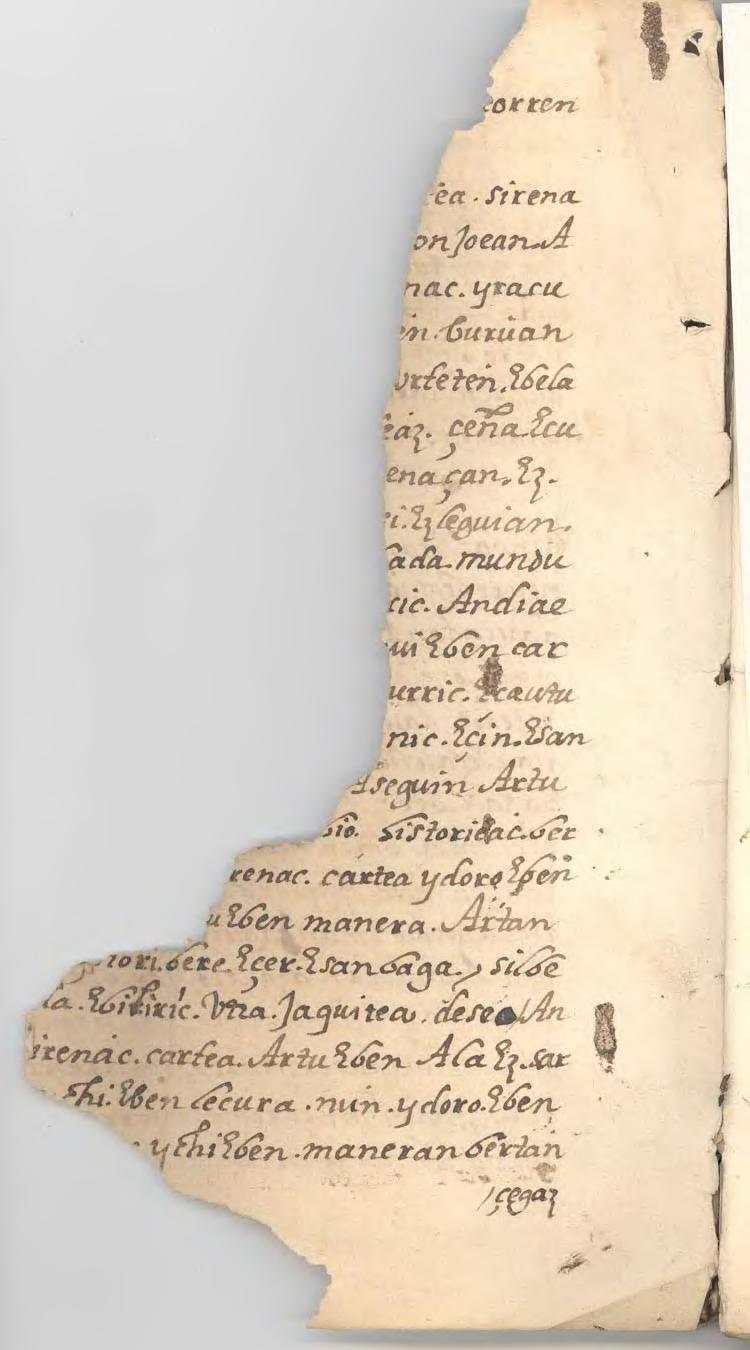 corren
tea. sirena
on Joean. A
nac. yracu
en. buruan
urteten. Ebela
eaz. çeña. Ecu
ena çan. Ez.
i. Ez leguian.
ada. mundu
cic. Andiae
ui Eben car
urric. Ecautu
nic. Eçin. Esan
Aseguin Artu
bio. historiac. ber
renac. cartea ydoro Eben
u Eben manera. Artan
tori. bere. Eçer. Esan baga., silbe
la. Ebiliric. Vtra. Jaquitea. deseo / An
irenac. cartea. Artu Eben Ala Ez. sar
chi. Eben lecura. nun. ydoro. Eben
ychi Eben. maneran bertan
/ çegaz